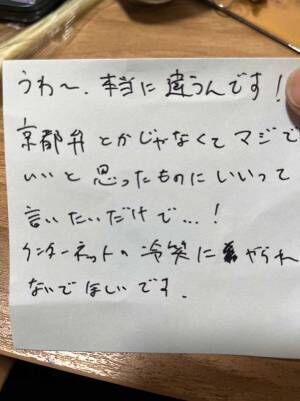 うわ〜、本当に違うんです!
京都弁とかじゃなくてマジで
いいと思ったものにいいって
言いたいだけで…!
インターネットの冷笑に やられ
ないでほしいです.